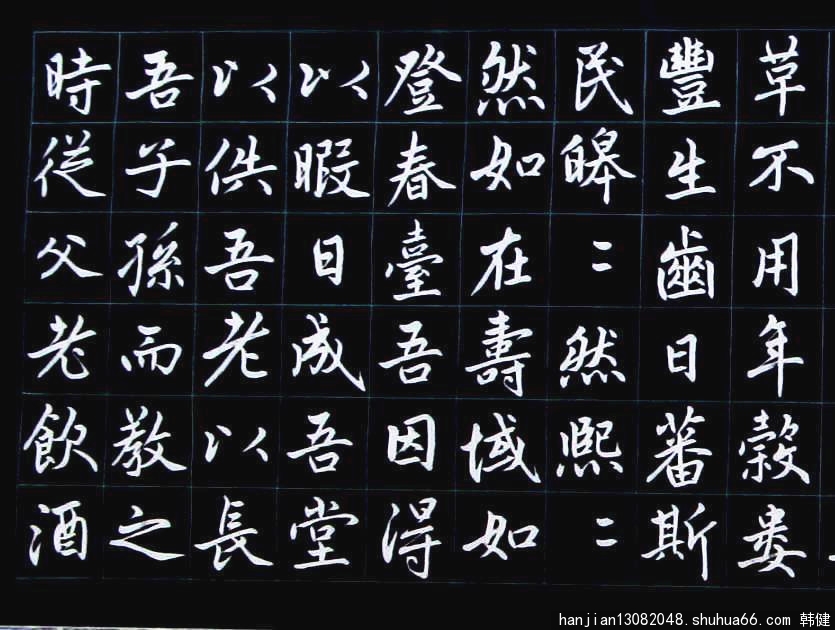 草不用年穀婁
豐生齒日蕃斯
民皞〻然熙〻
然如在壽域如
登春臺吾因得
以暇日成吾堂
以供吾老以長
吾子孫而教之
時從父老飲酒
hanjian13082048.shuhua66.com 韩健